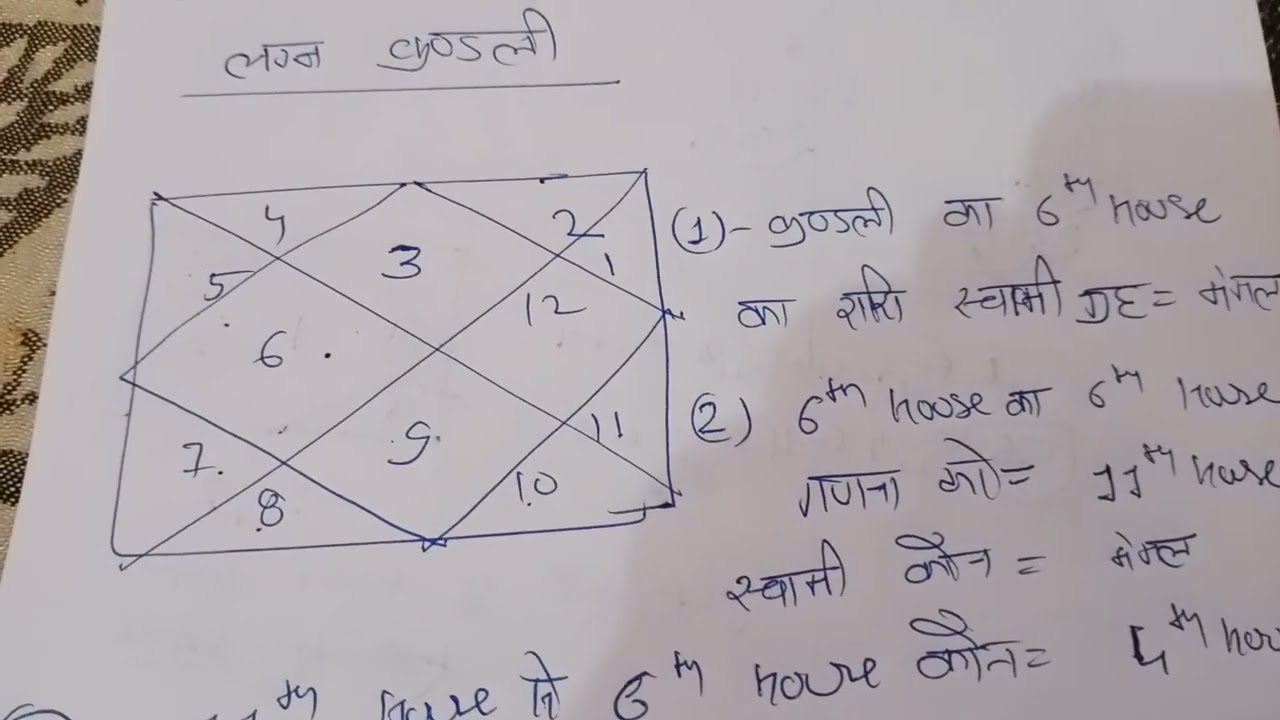 लग्न कुण्डली
4
2
5
3
1
12
6
7
9
11
8
10
(1)- कुण्डली का 6th house
का राशि स्वामी ग्रह = मंगल
(2) 6th house का 6th house
गणना करे = 11th house
स्वामी कौन = मंगल
house से 6th house कौन =